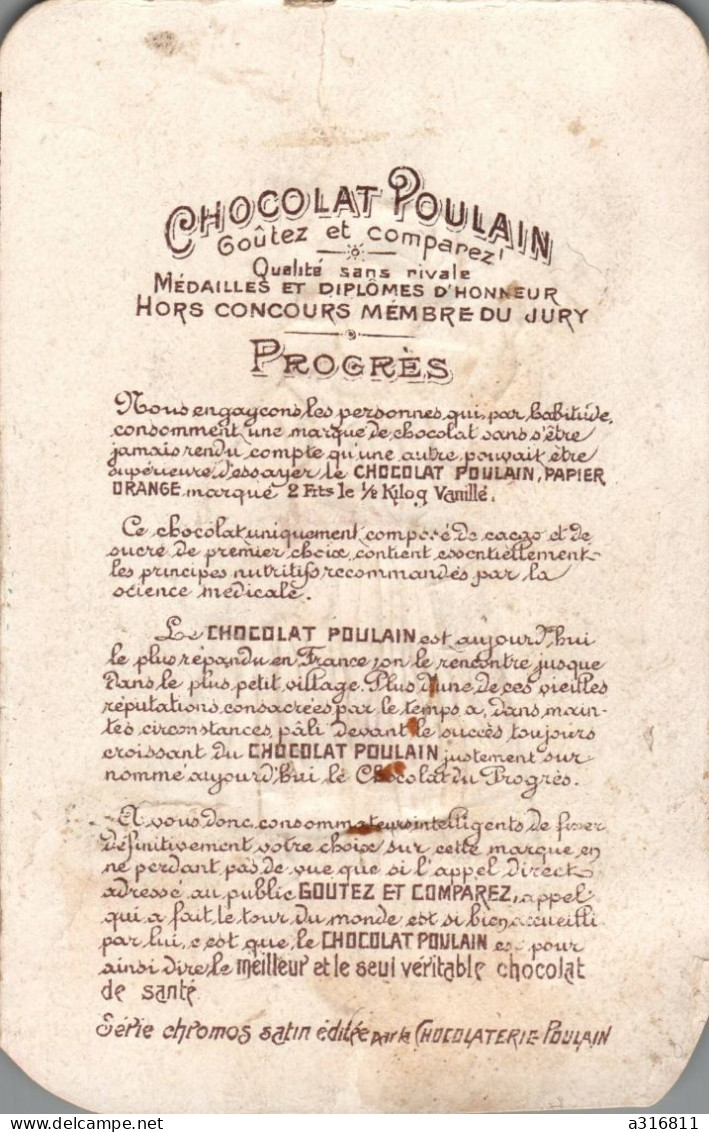 CHOCOLAT POULAIN
Goûtez et comparez!
Qualité sans rivale
MÉDAILLES ET DIPLÔMES D'HONNEUR
HORS CONCOURS MEMBRE DU JURY
PROGRÈS
Nous engageons les personnes qui, par habitude,
consomment une marque de chocolat sans s'être
jamais rendu compte qu'une autre pouvait être
supérieure, d'essayer le CHOCOLAT POULAIN, PAPIER
ORANGE marqué 2 Frs le ½ Kilog Vanillé.
Ce chocolat uniquement composé de cacao et de
sucre de premier choix, contient essentiellement
les principes nutritifs recommandés par la
science médicale.
Le CHOCOLAT POULAIN est aujourd'hui
le plus répandu en France, on le rencontre jusque
dans le plus petit village. Plus d'une de ces vieilles
réputations consacrées par le temps a, dans main-
tes circonstances, pâli devant le succès toujours
croissant du CHOCOLAT POULAIN justement sur-
nommé aujourd'hui le Chocolat du Progrès.
A vous donc, consommateurs intelligents de fixer
définitivement votre choix sur cette marque en
ne perdant pas de vue que si l'appel direct
adressé au public GOUTEZ ET COMPAREZ, appel
qui a fait le tour du monde est si bien accueilli
par lui, c'est que le CHOCOLAT POULAIN est pour
ainsi dire le meilleur et le seul véritable chocolat
de santé
Série chromos satin éditée par la CHOCOLATERIE-POULAIN
delcampe.net
a316811